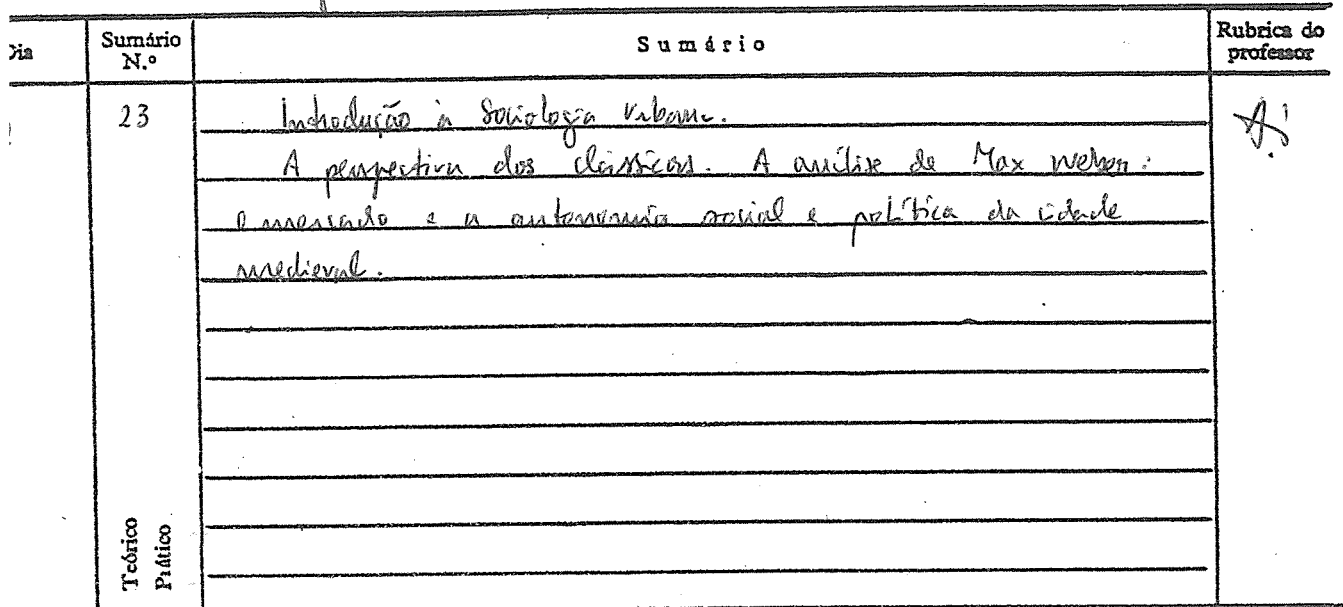 Dia
Sumário N.º
Sumário
Rubrica do professor
23
Introdução à Sociologia Urbana.
A perspectiva dos clássicos. A análise de Max Weber:
o mercado e a autonomia social e política da cidade
medieval.
Teórico
Prático